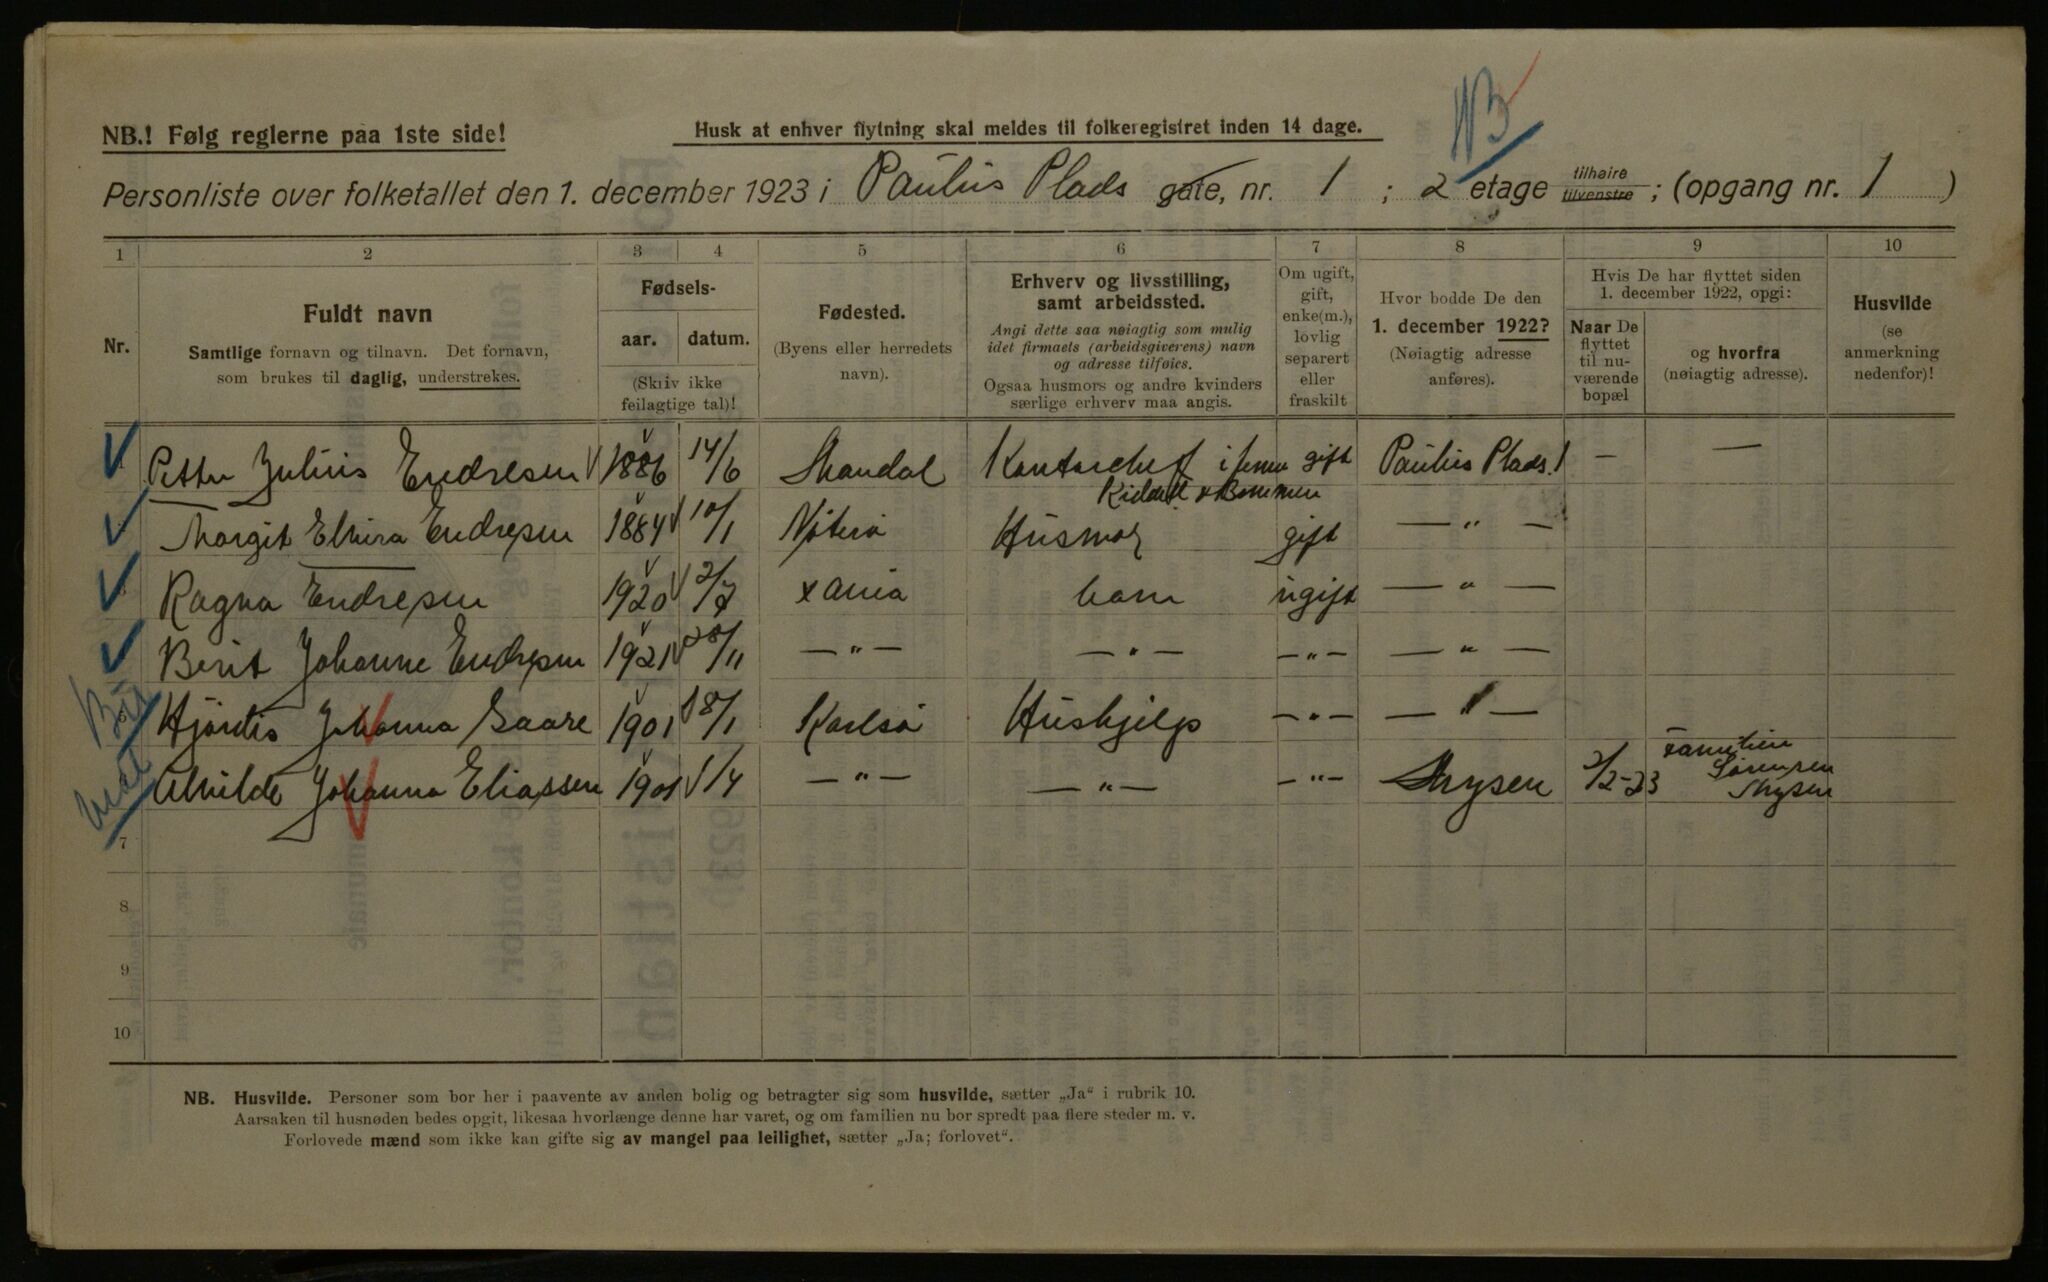 NB.! Følg reglerne paa 1ste side!
Husk at enhver flytning skal meldes til folkeregistret inden 14 dage.
NB
Personliste over folketallet den 1. december 1923 i Paulus Plads gate, nr. 1 ; 2 etage tilhøire tilvenstre ; (opgang nr. 1 )
1 2 3 4 5 6 7 8 9 10
Nr.
Fuldt navn
Samtlige fornavn og tilnavn. Det fornavn,
som brukes til daglig, understrekes.
Fødsels-
aar. datum.
(Skriv ikke
feilagtige tal)!
Fødested.
(Byens eller herredets
navn).
Erhverv og livsstilling,
samt arbeidssted.
Angi dette saa nøiagtig som mulig
idet firmaets (arbeidsgiverens) navn
og adresse tilføies.
Ogsaa husmors og andre kvinders
særlige erhverv maa angis.
Om ugift,
gift,
enke(m.),
lovlig
separert
eller
fraskilt
Hvor bodde De den
1. december 1922?
(Nøiagtig adresse
anføres).
Hvis De har flyttet siden
1. december 1922, opgi:
Naar De
flyttet
til nu-
værende
bopæl
og hvorfra
(nøiagtig adresse).
Husvilde
(se
anmerkning
nedenfor)!
Petter Julius Endresen 1886 14/6 Mandal Kontorchef i firma gift Paulus Plads 1 — —
Margit Elvira Endresen 1884 10/1 Nøterø Husmor gift — " —
Ragna Endresen 1920 2/7 Xania barn ugift — " —
Berit Johanne Endresen 1921 28/11 — " — — " — — " — — " —
Hjørdis Johanna Gaare 1901 18/1 Karlsø Hushjelp — " — — " —
Alvilde Johanna Eliassen 1901 1/4 — " — — " — — " — Mysen 2/2-23 Familien
Sørensen
Mysen
7
8
9
10
NB. Husvilde. Personer som bor her i paavente av anden bolig og betragter sig som husvilde, sætter „Ja“ i rubrik 10.
Aarsaken til husnøden bedes opgit, likesaa hvorlænge denne har varet, og om familien nu bor spredt paa flere steder m. v.
Forlovede mænd som ikke kan gifte sig av mangel paa leilighet, sætter „Ja; forlovet“.